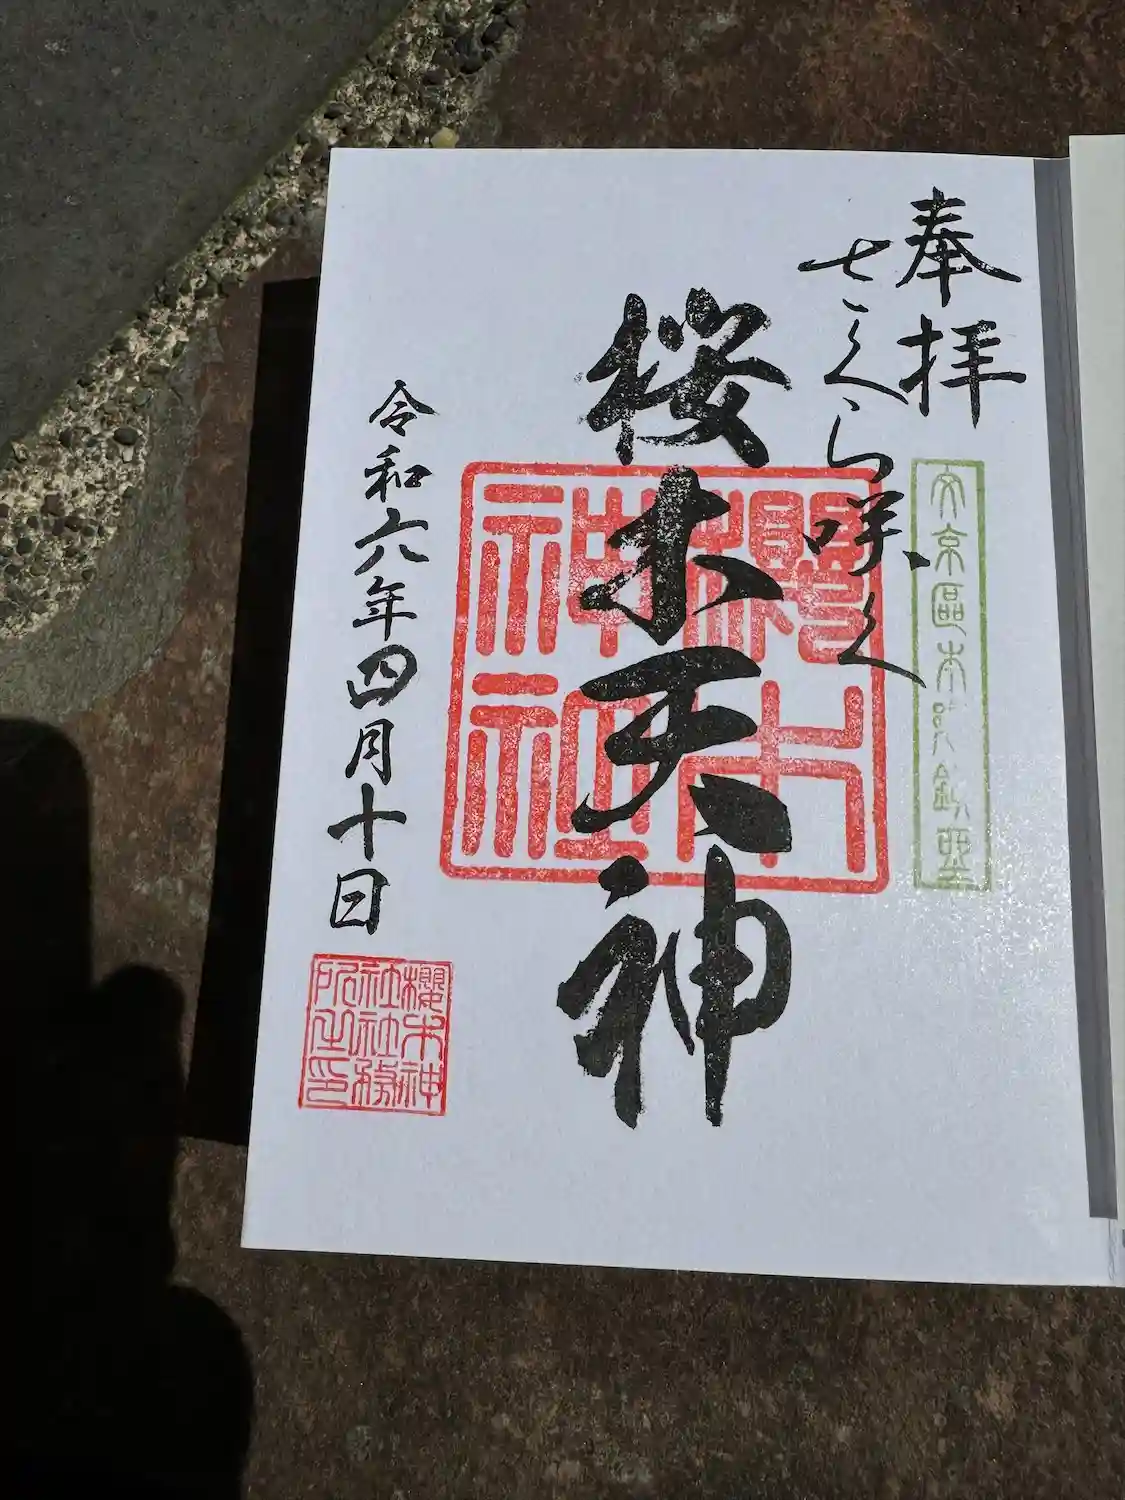 奉拝
文京區本郷鎮座
さくら咲く
桜木天神
櫻木
神社
令和六年四月十日
櫻木神
社社務
所之印